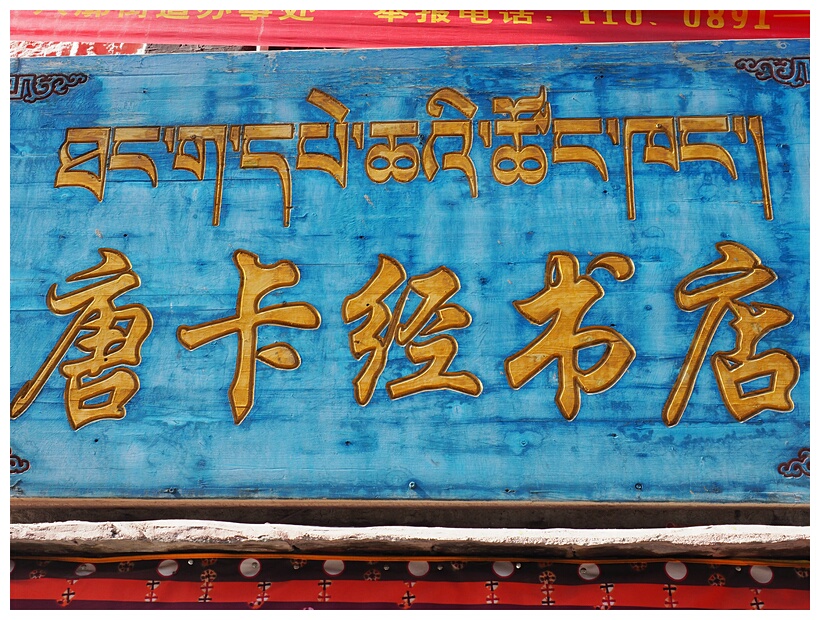 街道办事处 举报电话：110、0891
ཐང་ག་དང་པེ་ཆའི་ཚོང་ཁང་།
唐卡经书店